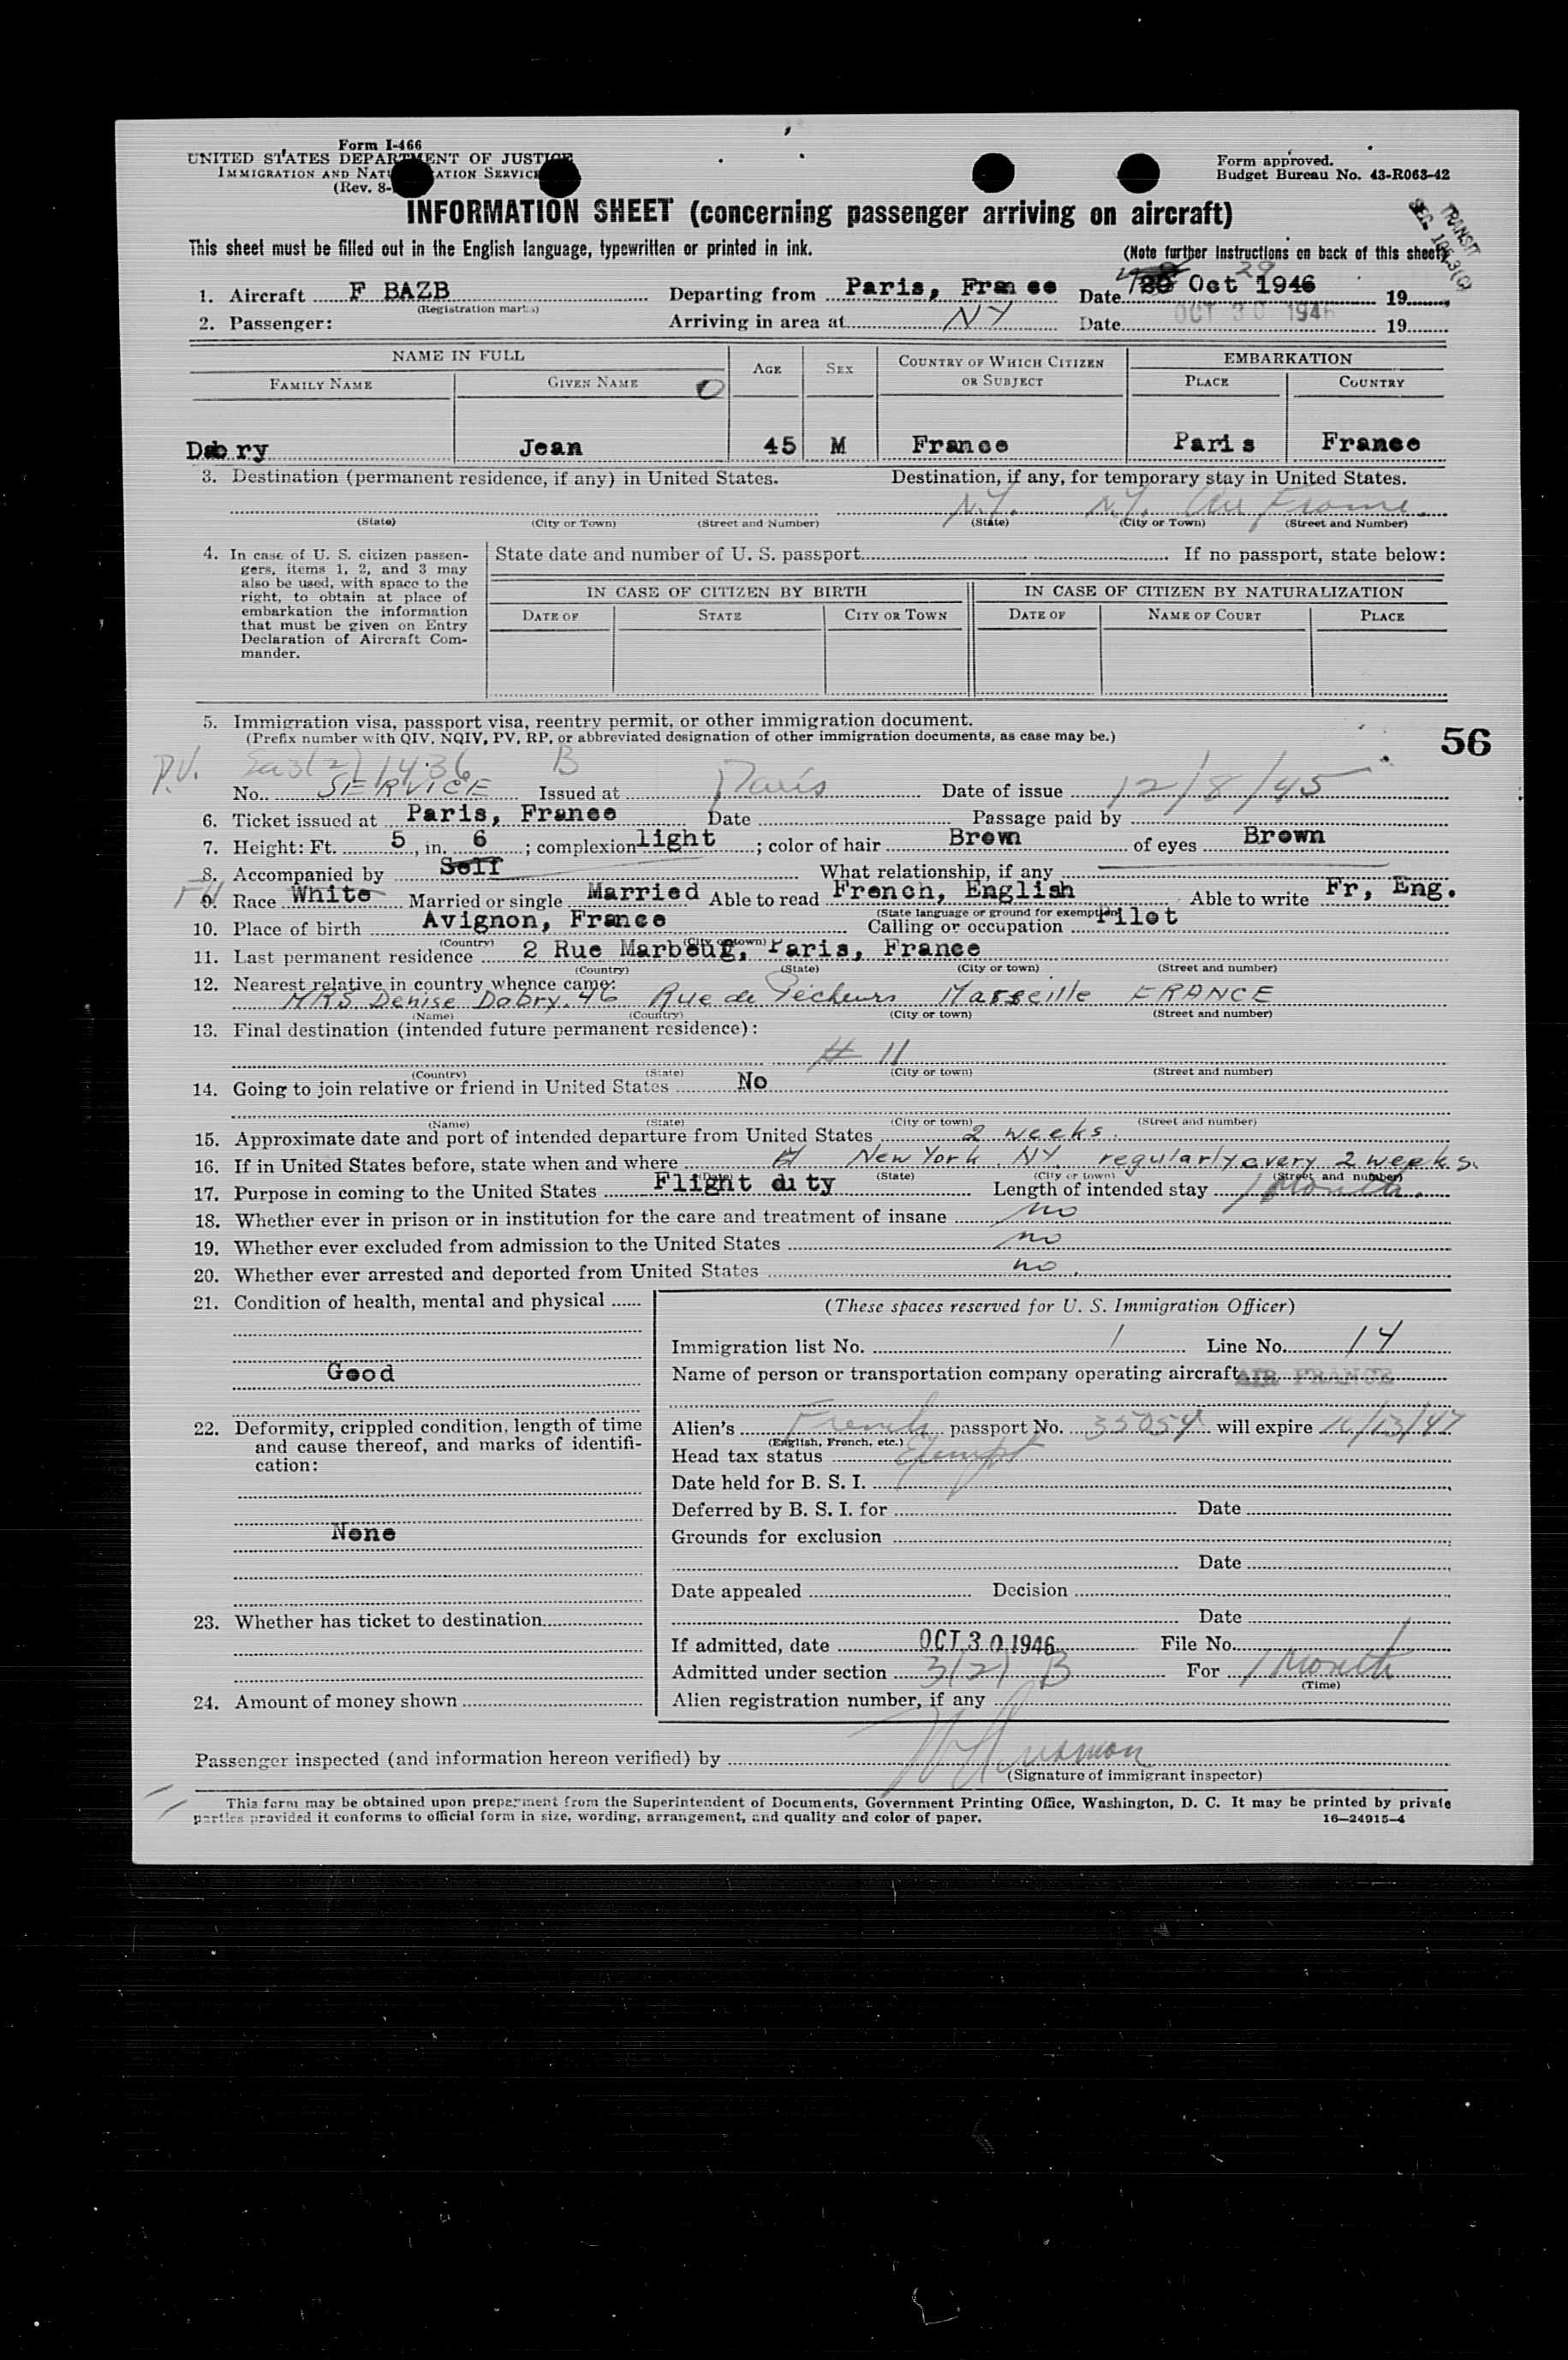 Form I-466
UNITED STATES DEPARTMENT OF JUSTICE
IMMIGRATION AND NATURALIZATION SERVICE
(Rev. 8-
Form approved.
Budget Bureau No. 43-R063-42
INFORMATION SHEET (concerning passenger arriving on aircraft)
TRANSIT
This sheet must be filled out in the English language, typewritten or printed in ink. (Note further instructions on back of this sheet)
1. Aircraft F BAZB Departing from Paris, France Date 29 Oct 1946 19
(Registration marks)
2. Passenger: Arriving in area at NY Date OCT 30 1946 19
NAME IN FULL AGE SEX COUNTRY OF WHICH CITIZEN OR SUBJECT EMBARKATION
FAMILY NAME GIVEN NAME PLACE COUNTRY
Dabry Jean 45 M France Paris France
3. Destination (permanent residence, if any) in United States. Destination, if any, for temporary stay in United States.
N.Y. N.Y. Air France
(State) (City or Town) (Street and Number) (State) (City or Town) (Street and Number)
4. In case of U. S. citizen passen-
gers, items 1, 2, and 3 may
also be used, with space to the
right, to obtain at place of
embarkation the information
that must be given on Entry
Declaration of Aircraft Com-
mander.
State date and number of U. S. passport If no passport, state below:
IN CASE OF CITIZEN BY BIRTH IN CASE OF CITIZEN BY NATURALIZATION
DATE OF STATE CITY OR TOWN DATE OF NAME OF COURT PLACE
5. Immigration visa, passport visa, reentry permit, or other immigration document.
(Prefix number with QIV, NQIV, PV, RP, or abbreviated designation of other immigration documents, as case may be.)
56
P.V. Sec 3(2) 1436 B
No. SERVICE Issued at Paris Date of issue 12/8/45
6. Ticket issued at Paris, France Date Passage paid by
7. Height: Ft. 5, in. 6; complexion light; color of hair Brown of eyes Brown
8. Accompanied by Self What relationship, if any
9. Race White Married or single Married Able to read French, English Able to write Fr, Eng.
(State language or ground for exemption)
10. Place of birth Avignon, France Calling or occupation Pilot
(Country) (City or town)
11. Last permanent residence 2 Rue Marbeuf, Paris, France
(Country) (State) (City or town) (Street and number)
12. Nearest relative in country whence came:
MRS Denise Dabry 46 Rue de Pecheurs Marseille FRANCE
(Name) (Country) (City or town) (Street and number)
13. Final destination (intended future permanent residence):
# 11
(Country) (State) (City or town) (Street and number)
14. Going to join relative or friend in United States No
(Name) (State) (City or town) (Street and number)
15. Approximate date and port of intended departure from United States 2 weeks.
16. If in United States before, state when and where New York. NY. regularly every 2 weeks.
(Date) (State) (City or town) (Street and number)
17. Purpose in coming to the United States Flight duty Length of intended stay 1 Month.
18. Whether ever in prison or in institution for the care and treatment of insane no
19. Whether ever excluded from admission to the United States no
20. Whether ever arrested and deported from United States no.
21. Condition of health, mental and physical
Good
22. Deformity, crippled condition, length of time
and cause thereof, and marks of identifi-
cation:
None
23. Whether has ticket to destination
24. Amount of money shown
(These spaces reserved for U. S. Immigration Officer)
Immigration list No. 1 Line No. 14
Name of person or transportation company operating aircraft AIR FRANCE
Alien's French passport No. 35054 will expire 11/13/47
(English, French, etc.)
Head tax status Exempt
Date held for B. S. I.
Deferred by B. S. I. for Date
Grounds for exclusion
Date
Date appealed Decision
Date
If admitted, date OCT 30 1946 File No.
Admitted under section 3(2) B For 1 Month
(Time)
Alien registration number, if any
Passenger inspected (and information hereon verified) by
(Signature of immigrant inspector)
This form may be obtained upon prepayment from the Superintendent of Documents, Government Printing Office, Washington, D. C. It may be printed by private
parties provided it conforms to official form in size, wording, arrangement, and quality and color of paper. 16—24915-4